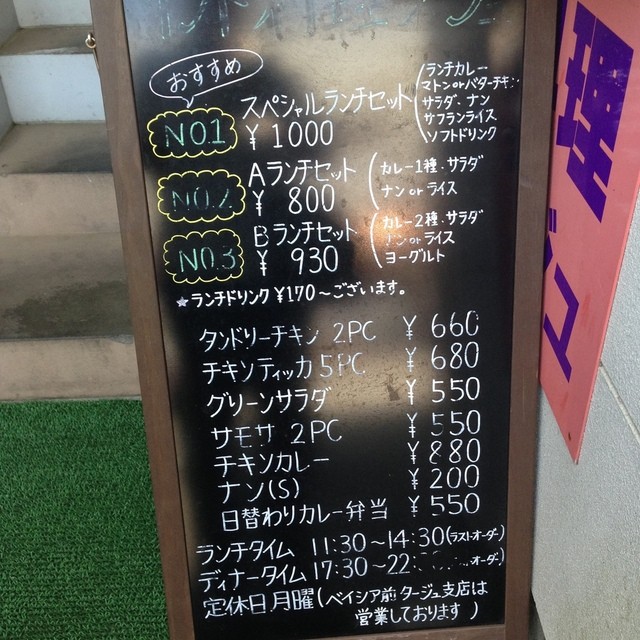 おすすめ
NO.1 スペシャルランチセット
¥1000
ランチカレー
マトンorバターチキン
サラダ、ナン
サフランライス
ソフトドリンク
NO.2 Aランチセット
¥ 800
カレー1種、サラダ
ナンorライス
NO.3 Bランチセット
¥ 930
カレー2種、サラダ
ナンorライス
ヨーグルト
★ランチドリンク ¥170〜ございます。
タンドリーチキン 2PC ¥660
チキンティッカ 5PC ¥680
グリーンサラダ ¥550
サモサ 2PC ¥550
チキンカレー ¥880
ナン(S) ¥200
日替わりカレー弁当 ¥550
ランチタイム 11:30〜14:30(ラストオーダー)
ディナータイム 17:30〜22: オーダー)
定休日 月曜(ベイシア前タージュ支店は
営業しております)